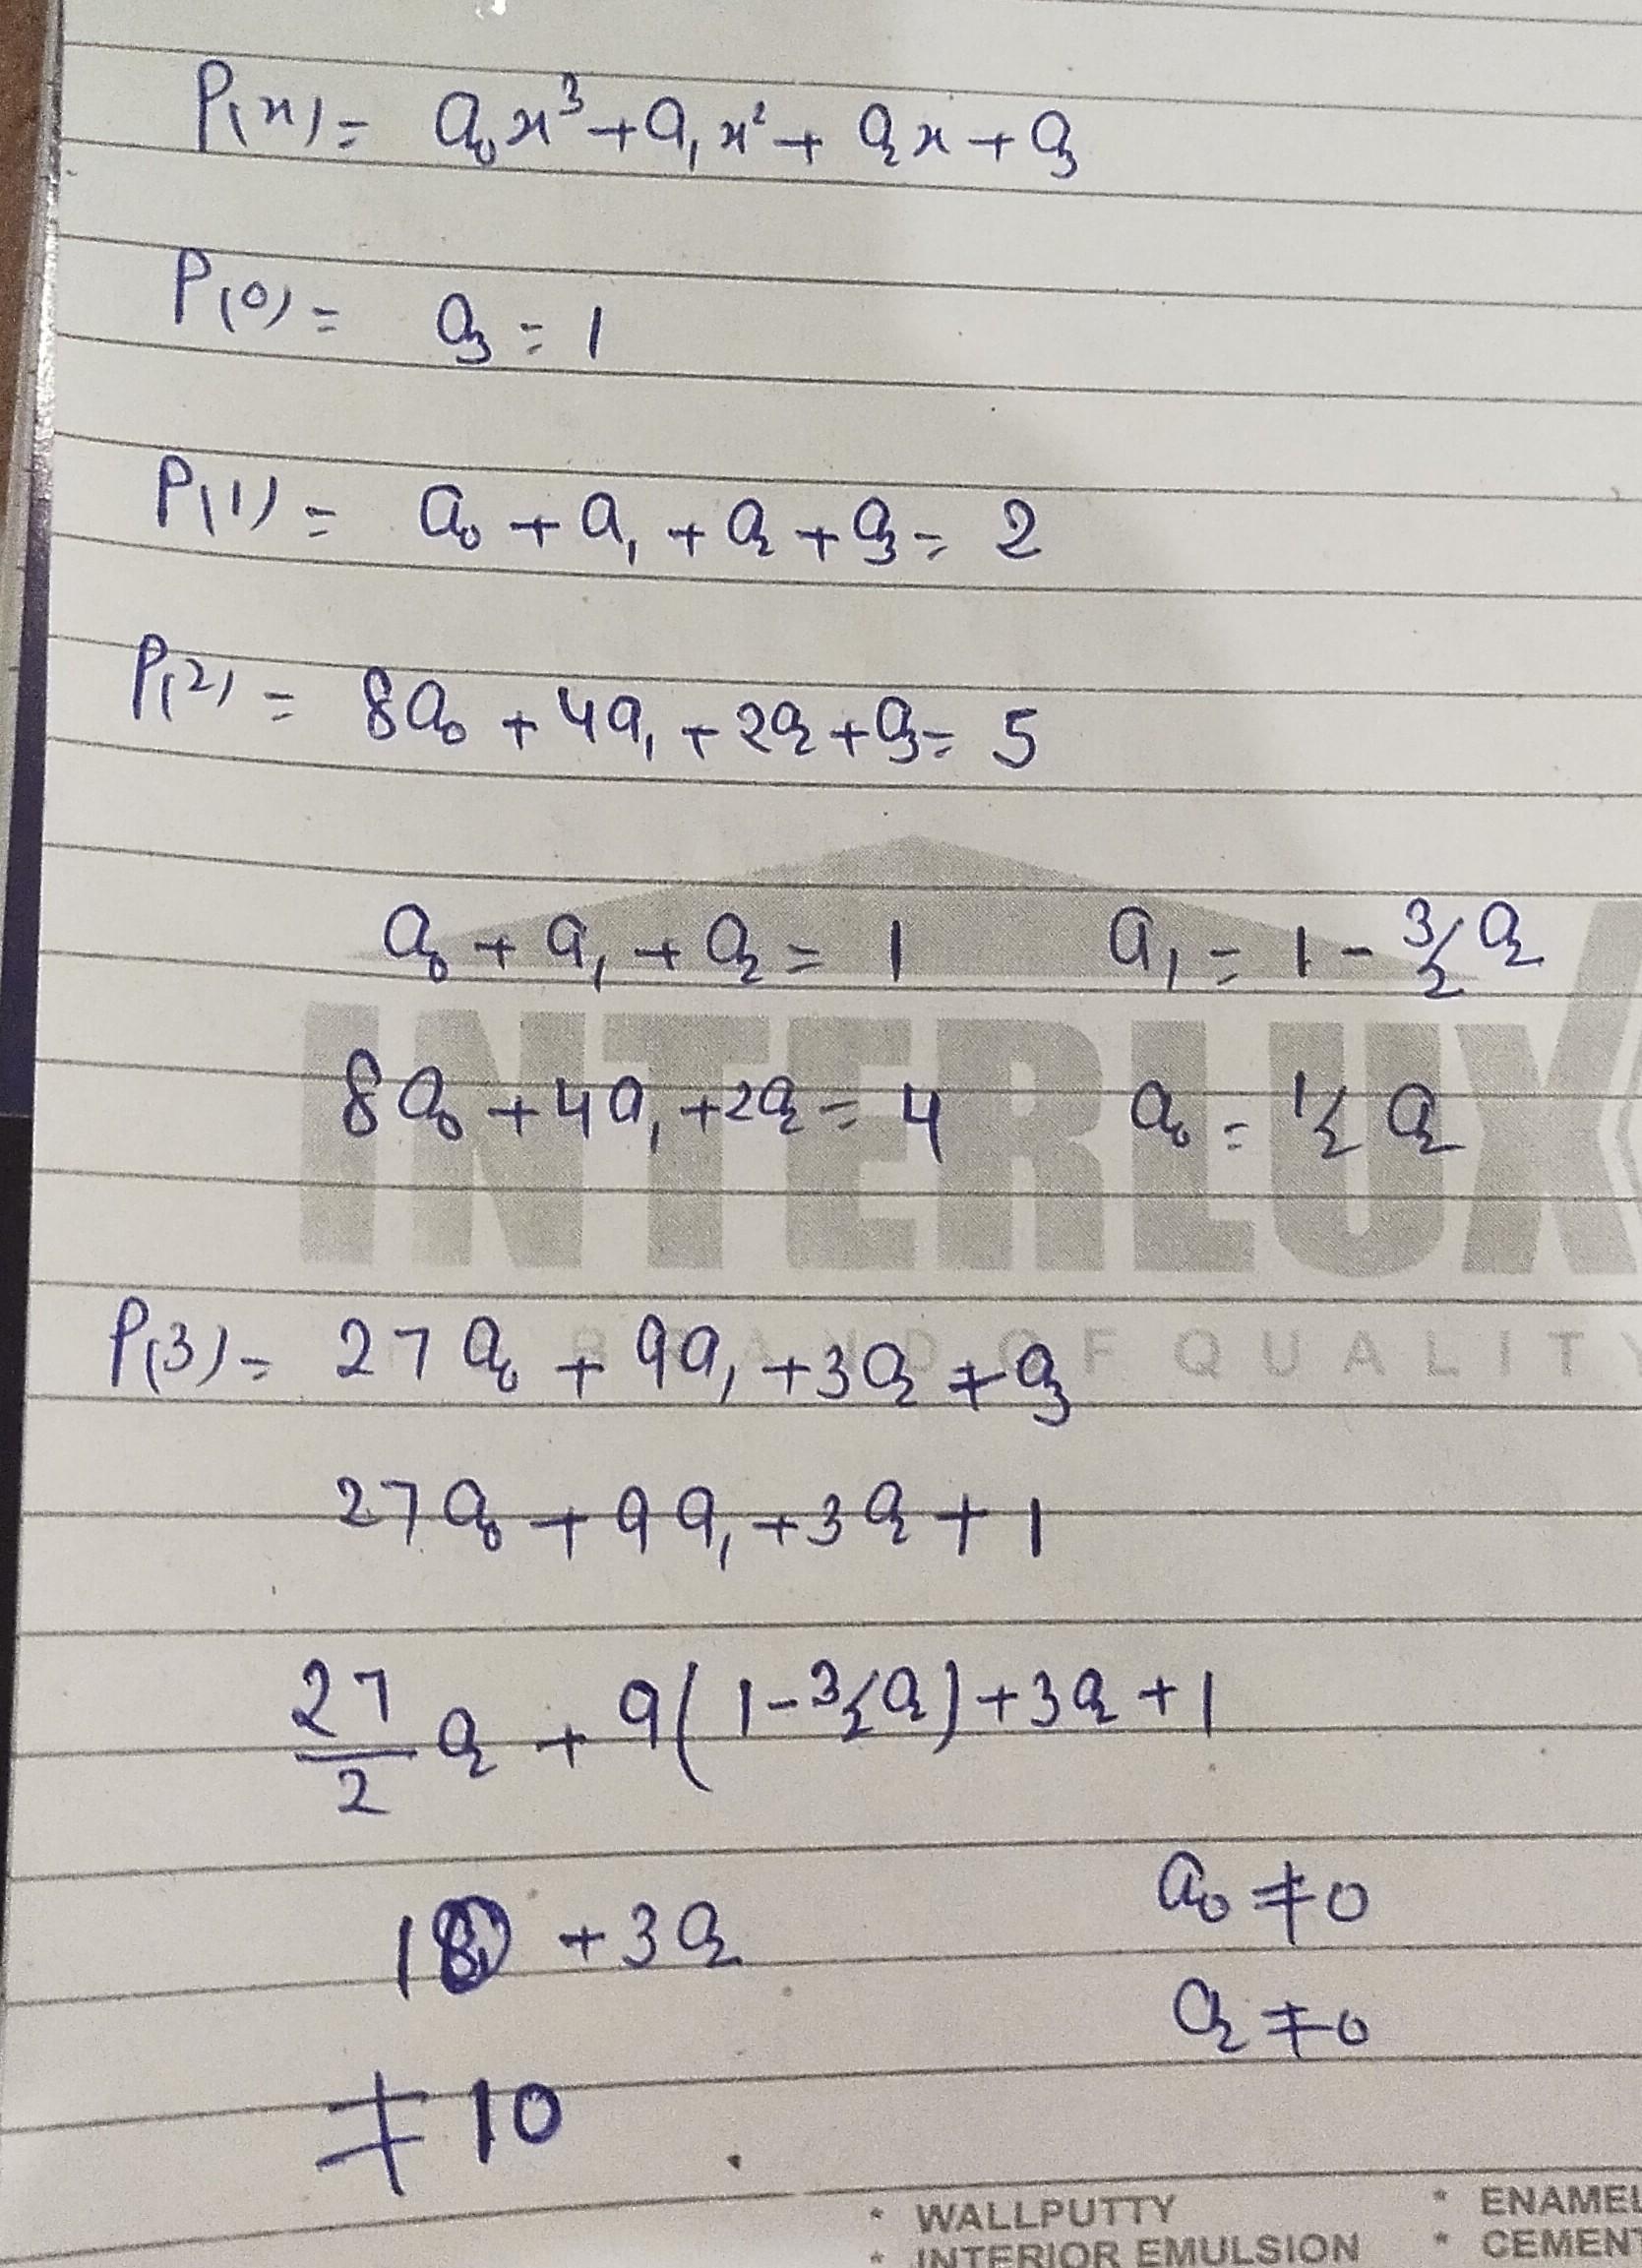 P(x) = a₀x³ + a₁x² + a₂x + a₃
P(0) = a₃ = 1
P(1) = a₀ + a₁ + a₂ + a₃ = 2
P(2) = 8a₀ + 4a₁ + 2a₂ + a₃ = 5
a₀ + a₁ + a₂ = 1 a₁ = 1 - 3/2 a₂
8a₀ + 4a₁ + 2a₂ = 4 a₀ = 1/2 a₂
INTERLUX
BRAND OF QUALITY
P(3) = 27a₀ + 9a₁ + 3a₂ + a₃
27a₀ + 9a₁ + 3a₂ + 1
27/2 a₂ + 9(1 - 3/2 a₂) + 3a₂ + 1
10 + 3a₂ a₀ ≠ 0
a₂ ≠ 0
≠ 10
* WALLPUTTY * ENAMEL
* INTERIOR EMULSION * CEMENT